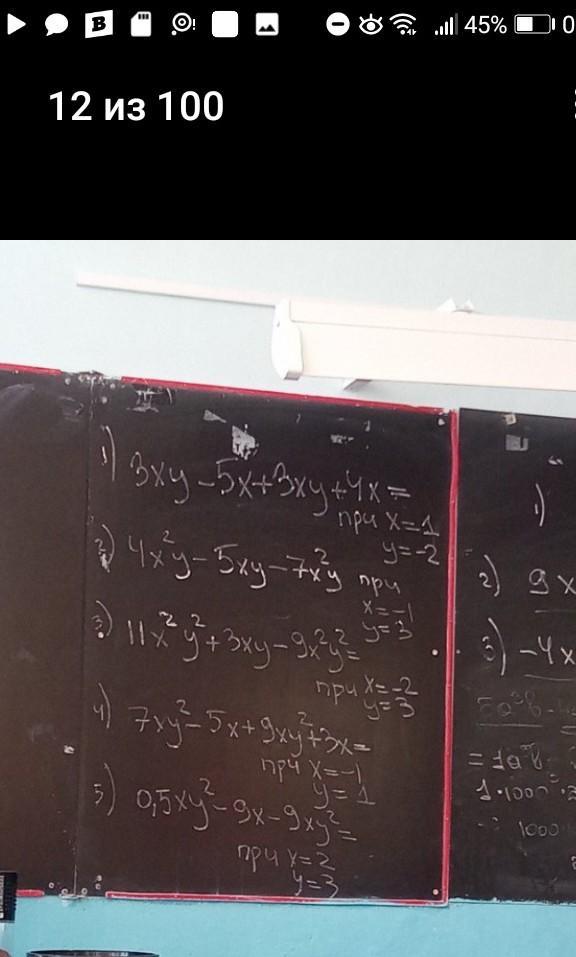 45%
12 из 100
1) 3xy - 5x + 3xy + 4x =
при x = 1
y = -2
2) 4x²y - 5xy - 7x²y при
x = -1
y = 3
3) 11x²y² + 3xy - 9x²y² =
при x = -2
y = 3
4) 7xy² - 5x + 9xy² + 3x =
при x = -1
y = 1
5) 0,5xy² - 9x - 9xy² =
при x = 2
y = 3
1)
2) 9x
3) -4x